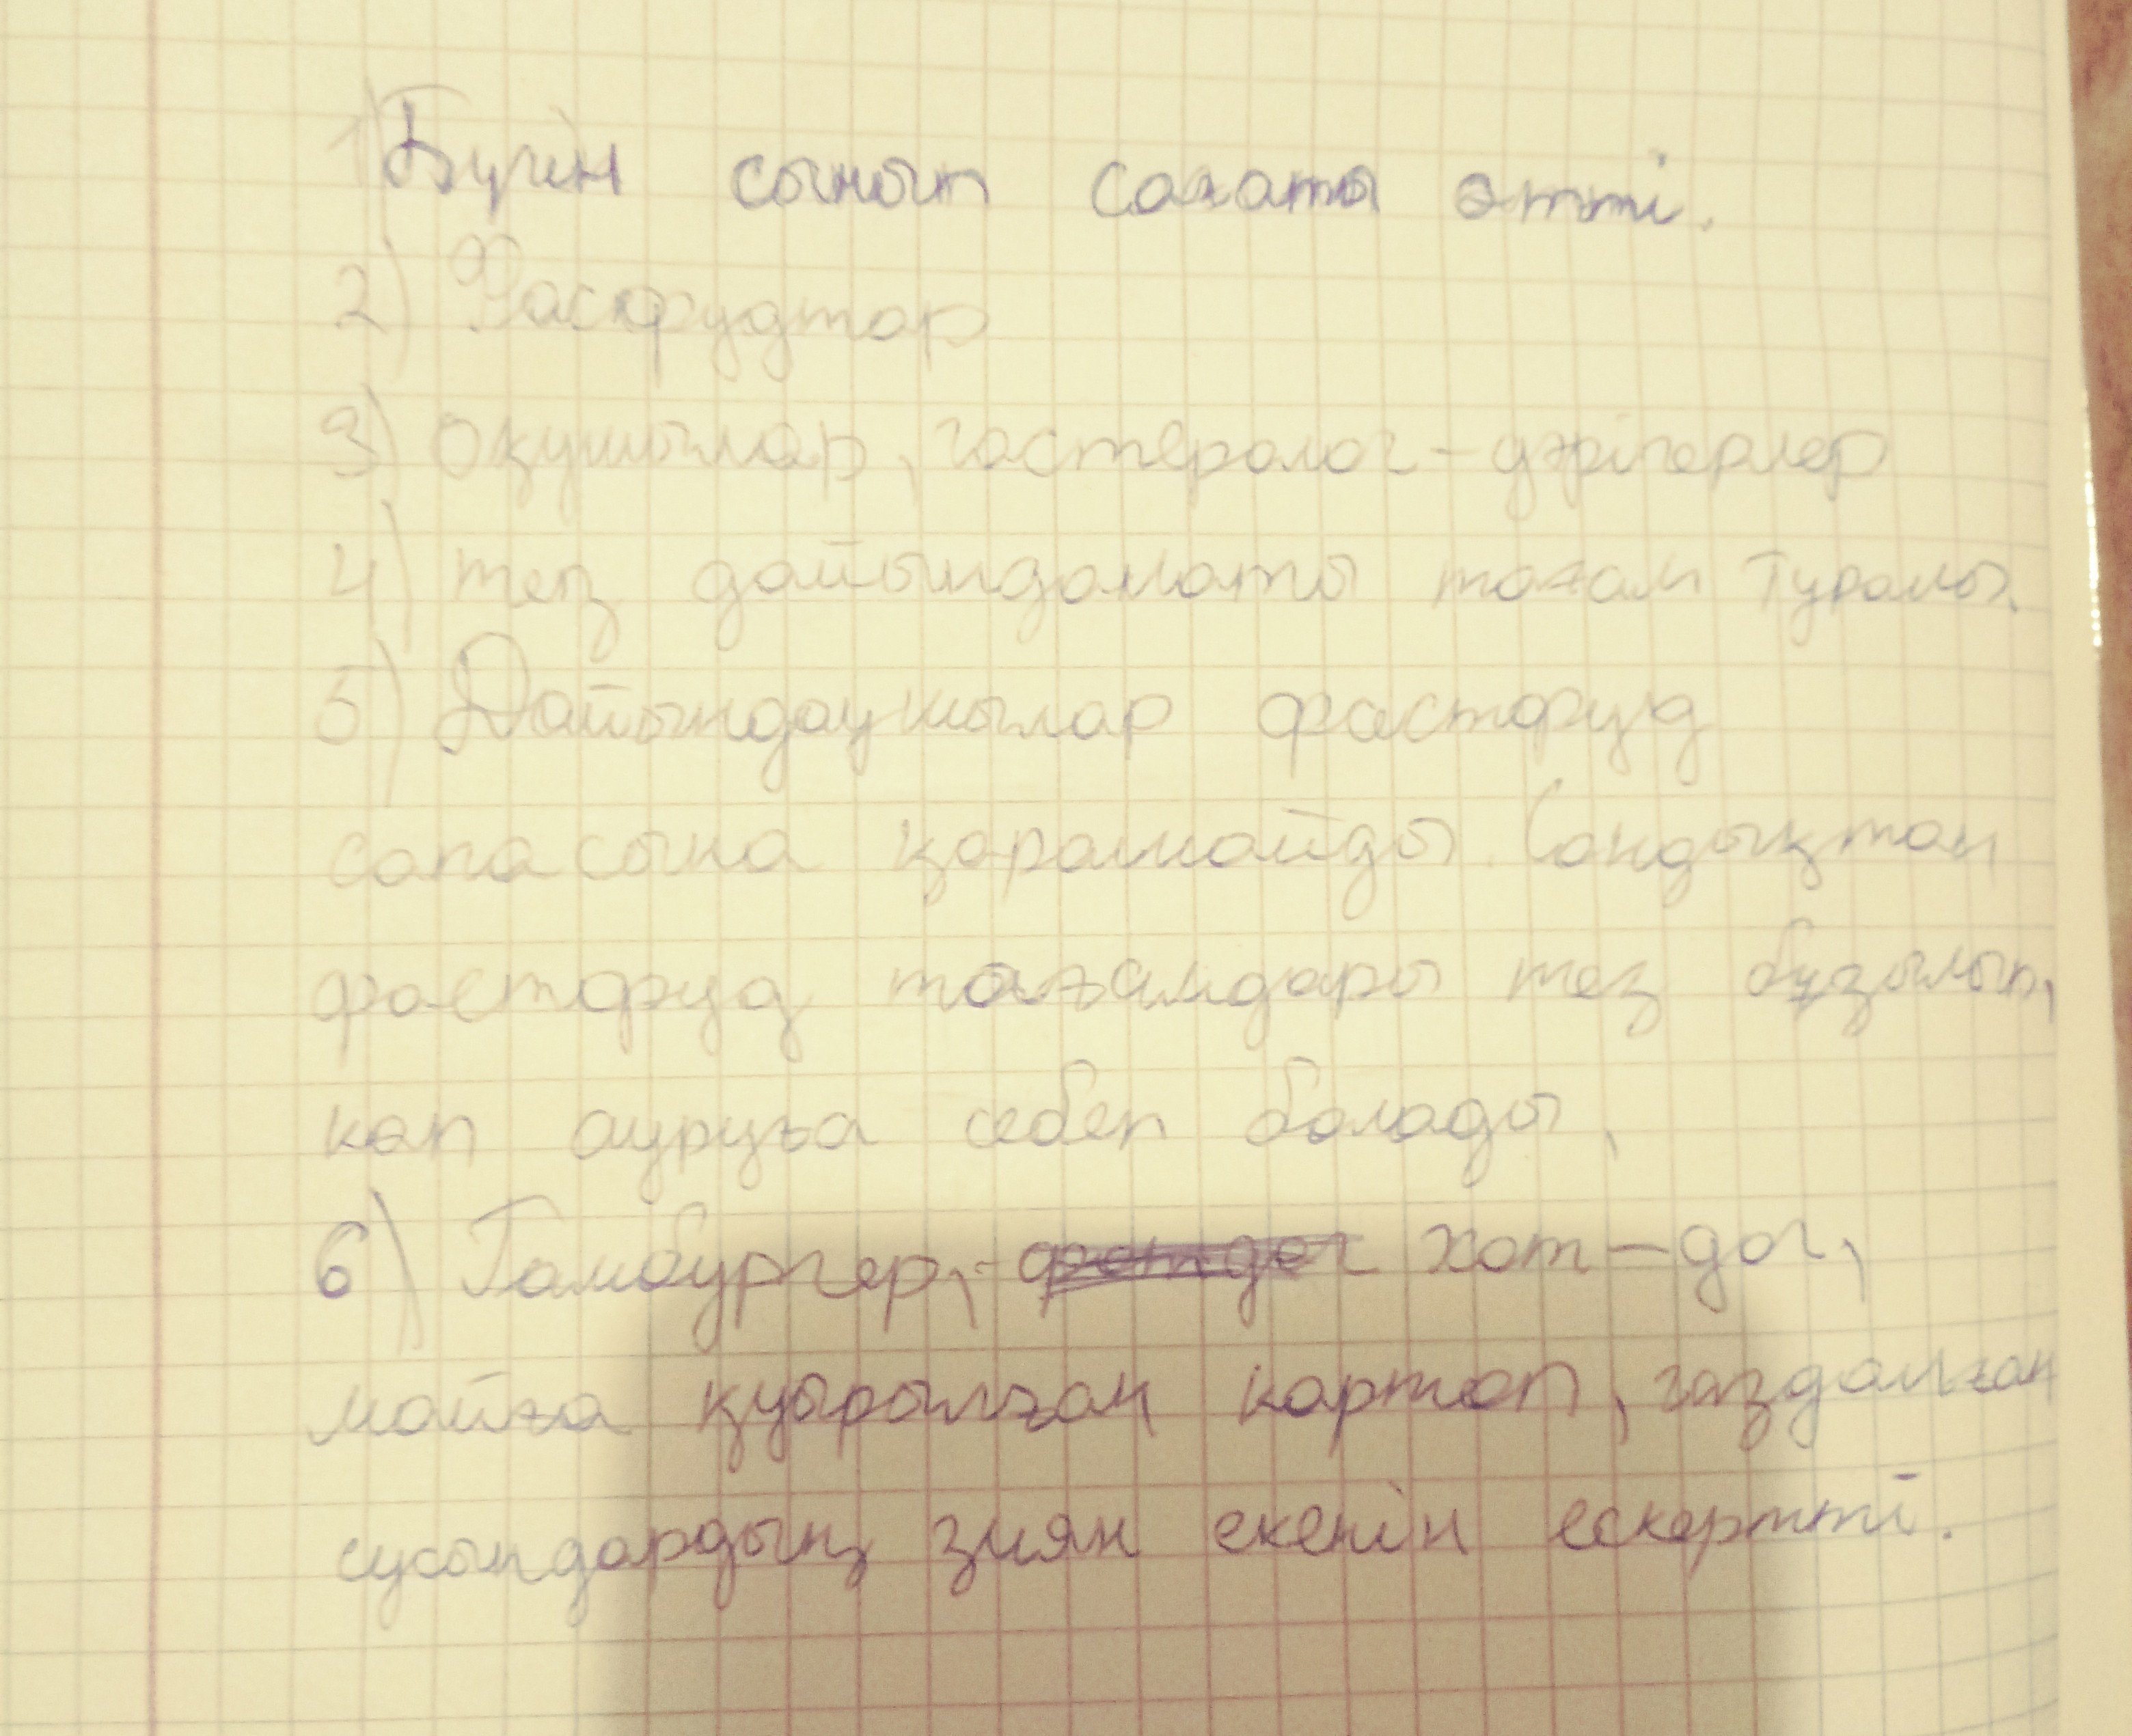 1) Бүгін сынып сағаты өтті.
2) Фасфудтар
3) оқушылар, гастеролог-дәрігерлер
4) тез дайындалаты тағам туралы.
5) Дайындаушылар фастфуд
сапасына қарамайды. Сондықтан
фастфуд тағамдары тез бұзылып,
көп ауруға себеп болады,
6) Гамбургер, хот-дог,
майға қуырылған картоп, газдалған
сусындардың зиян екенін ескертті.